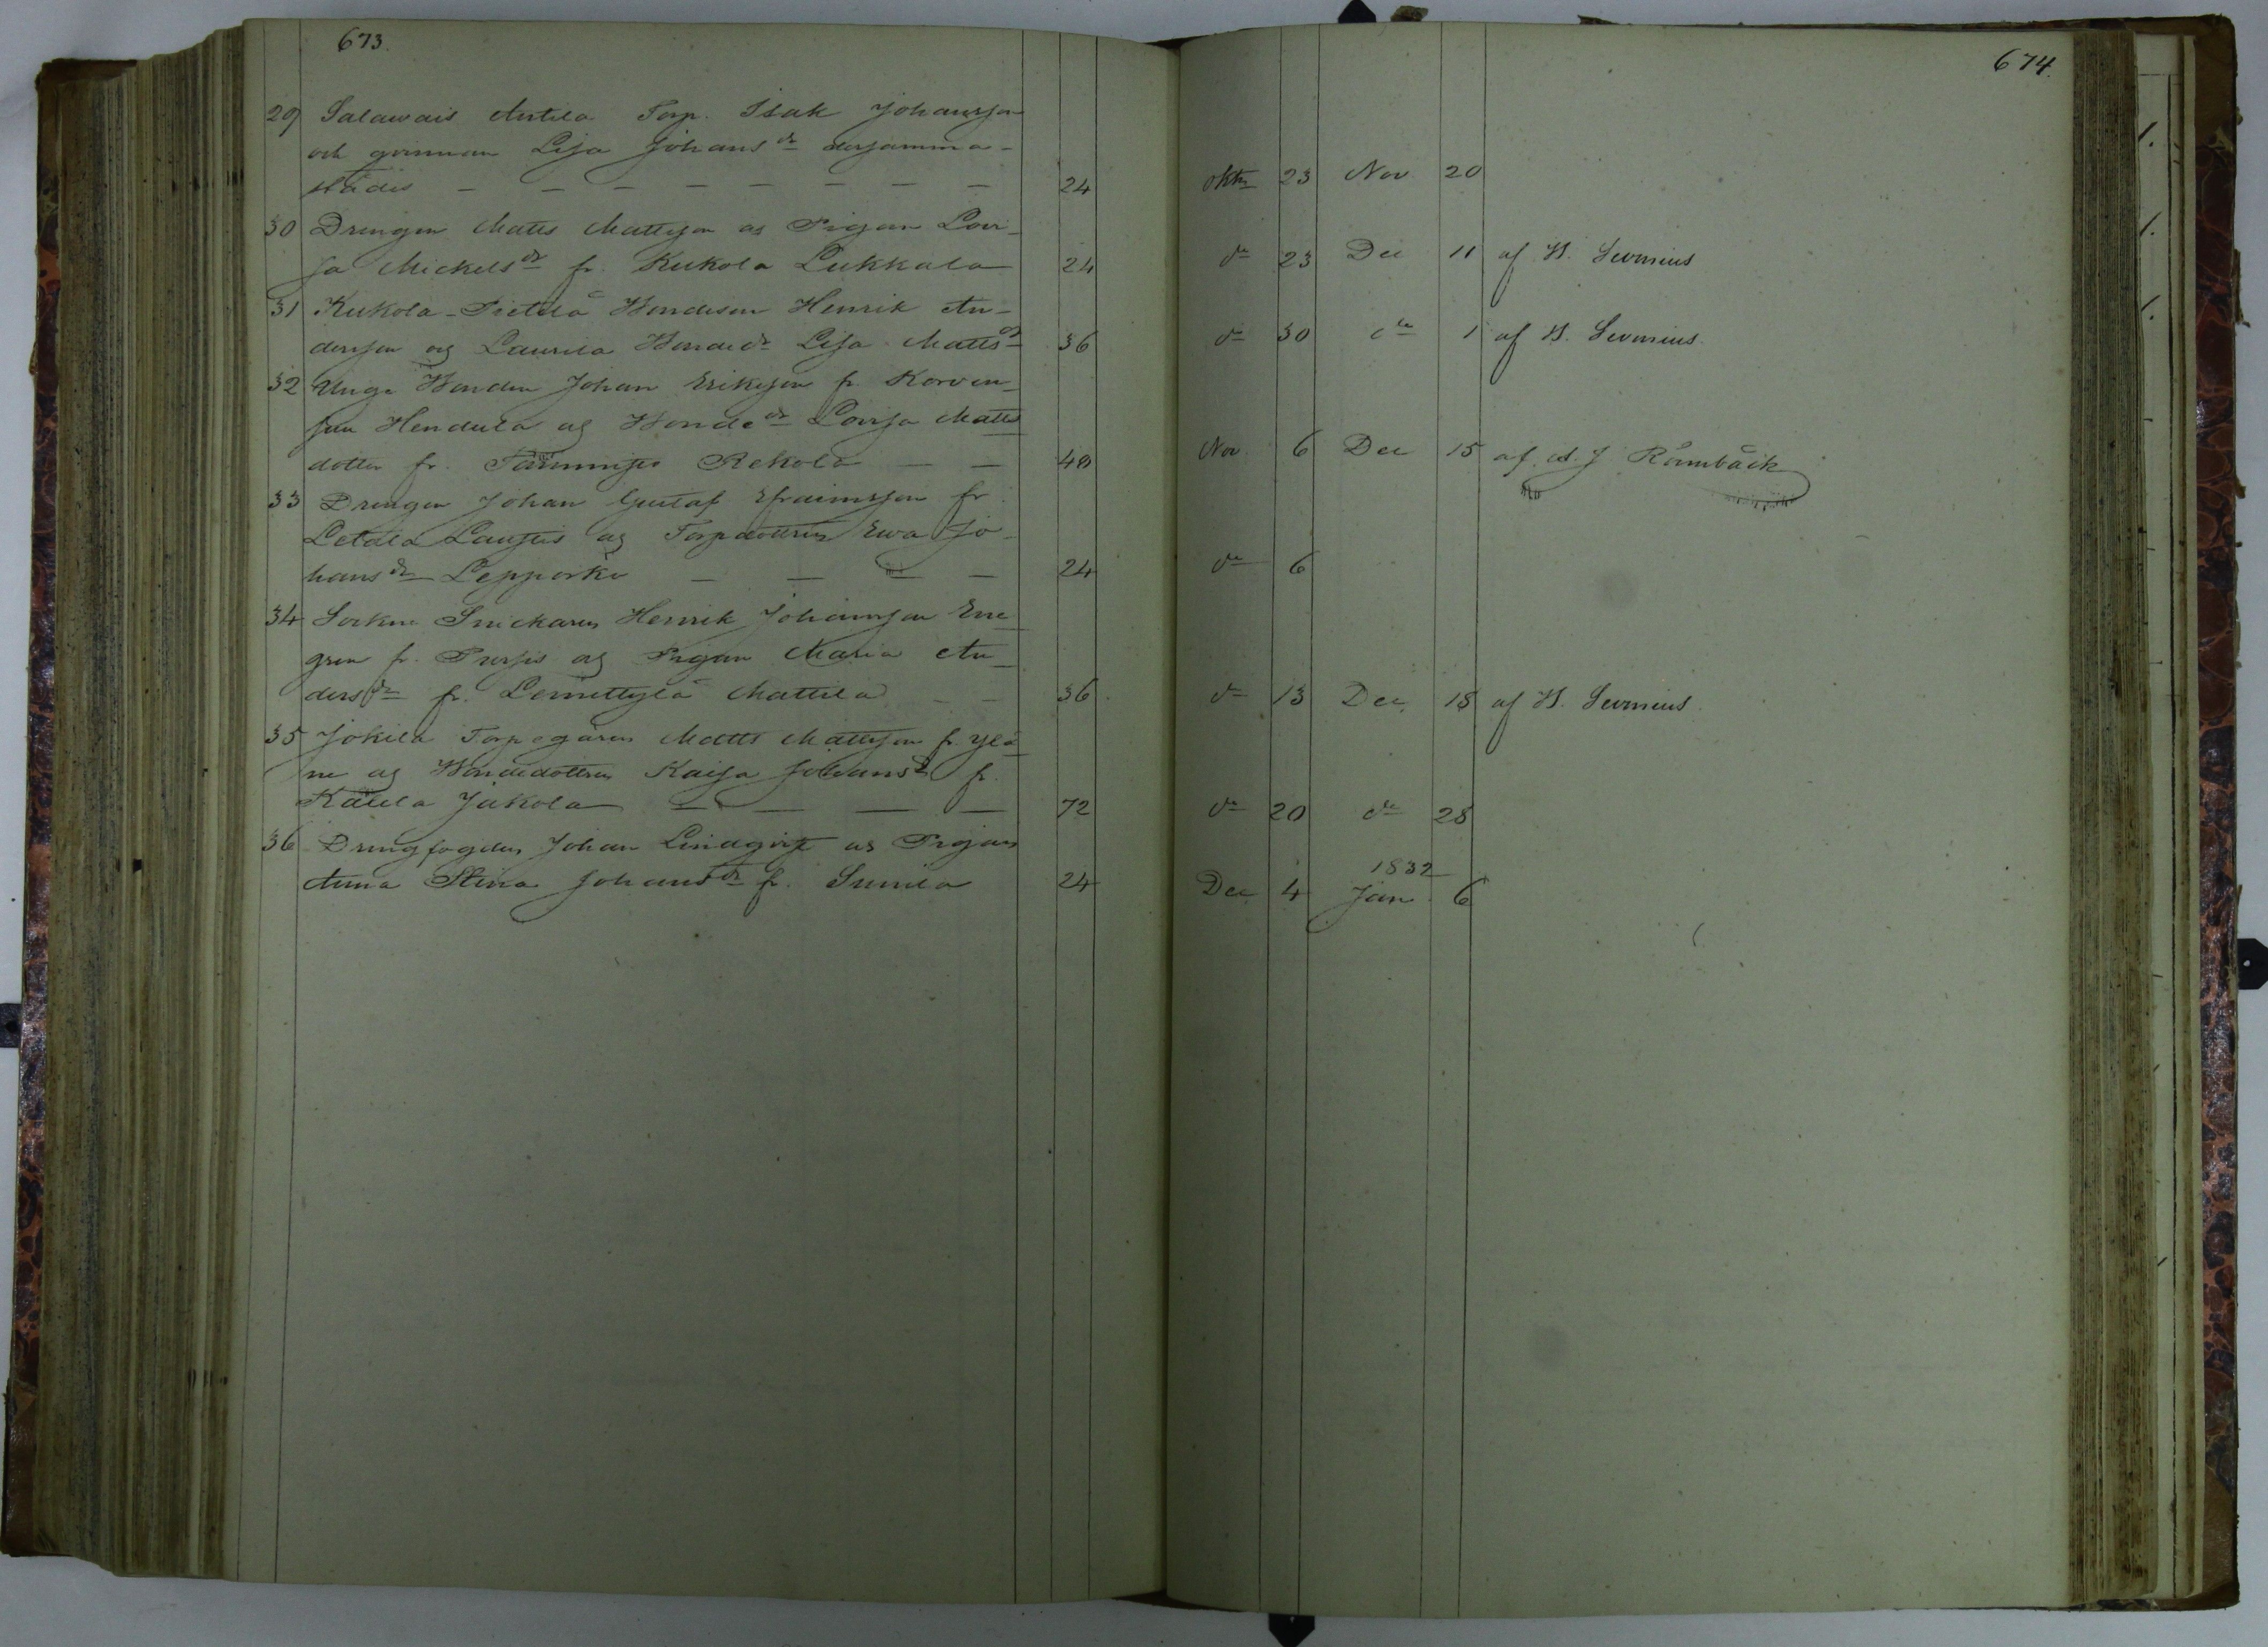 673.
29 Salawais Anttila Torp. Isak Johansson
och qvinnan Lisa Johans dr dersamma-
städis — — — — — — — — 24
30 Drengen Matts Mattsson og Pigan Lovi-
sa Mickels dr fr. Kukola Lukkala 24
31 Kukola-Pietilä Bondeson Henrik An-
dersson og Laurila Bonde dr Lisa Matts dr 36
32 Unga Bonden Johan Eriksson fr. Korven-
suu Hendula og Bonde dr Lovisa Matts
dotter fr. Rekola — — 48
33 Drengen Johan Gustaf Efraimsson fr.
Letala Laustis og Torpdottren Ewa Jo-
hans dr Lepporko — — — — 24
34 Sockne Snickaren Henrik Johansson Ene
gren fr. Pursis og Pigan Maria An-
ders dr fr. Lemettylä Mattila — — 36
35 Jokila Torpegaren Matts Mattsson fr. Ylä-
ne og Bondedottren Kaisa Johans dr fr.
Kauila Jakola — — — — 72
36 Drengfogden Johan Lindqvist og Pigan
Anna Stina Johans dr fr. Sunila 24
674.
oktr 23 Nov 20
do 23 Dec 11 af H. Levonius
do 30 do 1 af H. Levonius
Nov. 6 Dec 15 af A. J Rämbäck
do 6
do 13 Dec. 18 af H. Levonius.
do 20 do 28
1832
Dec 4 Jan 6
1.
1.
1.